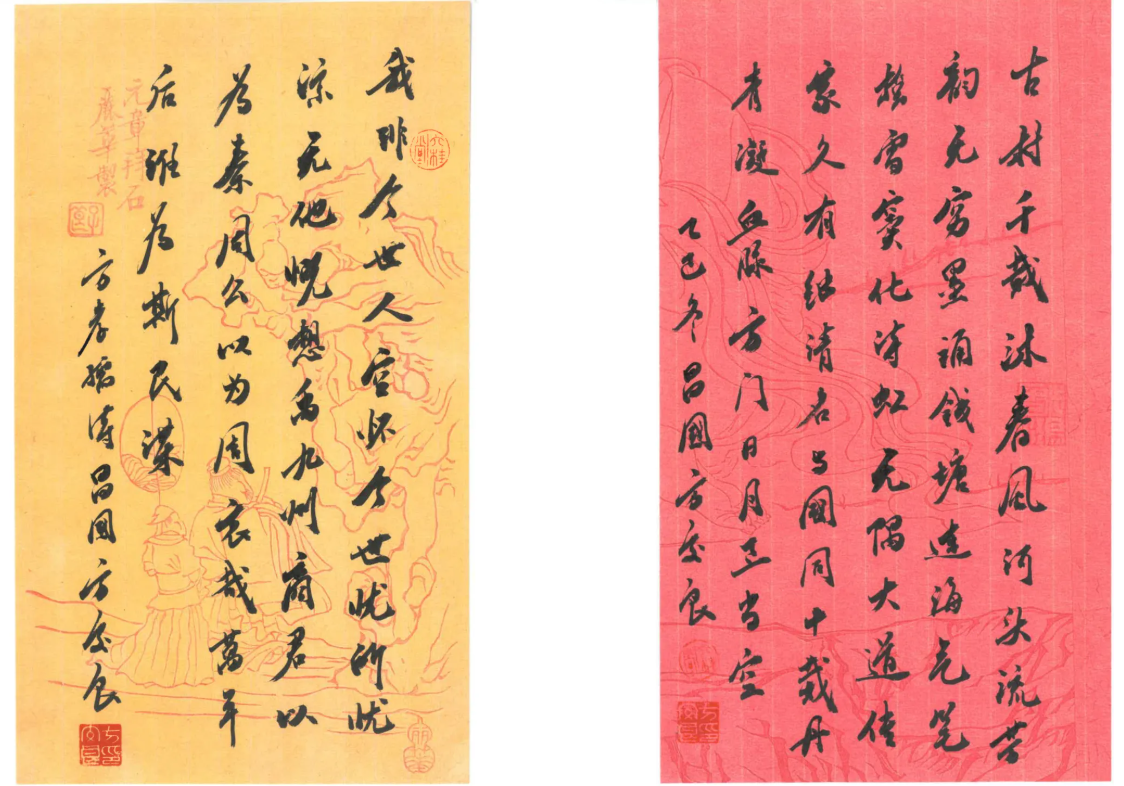 我非今世人空怀今世忧所忧
谅无他慨想禹九州商君以
为秦周公以为周哀哉萬年
后谁为斯民谋
方孝孺诗昌国方安良
元章拜石
古村千载沐春风河头流芳
韵无穷墨涌钱塘连海气笔
摇雪窦化诗虹无隅大道传
家久有结清名与国同十载丹
青凝血脉方门日月正当空
乙巳冬昌国方安良